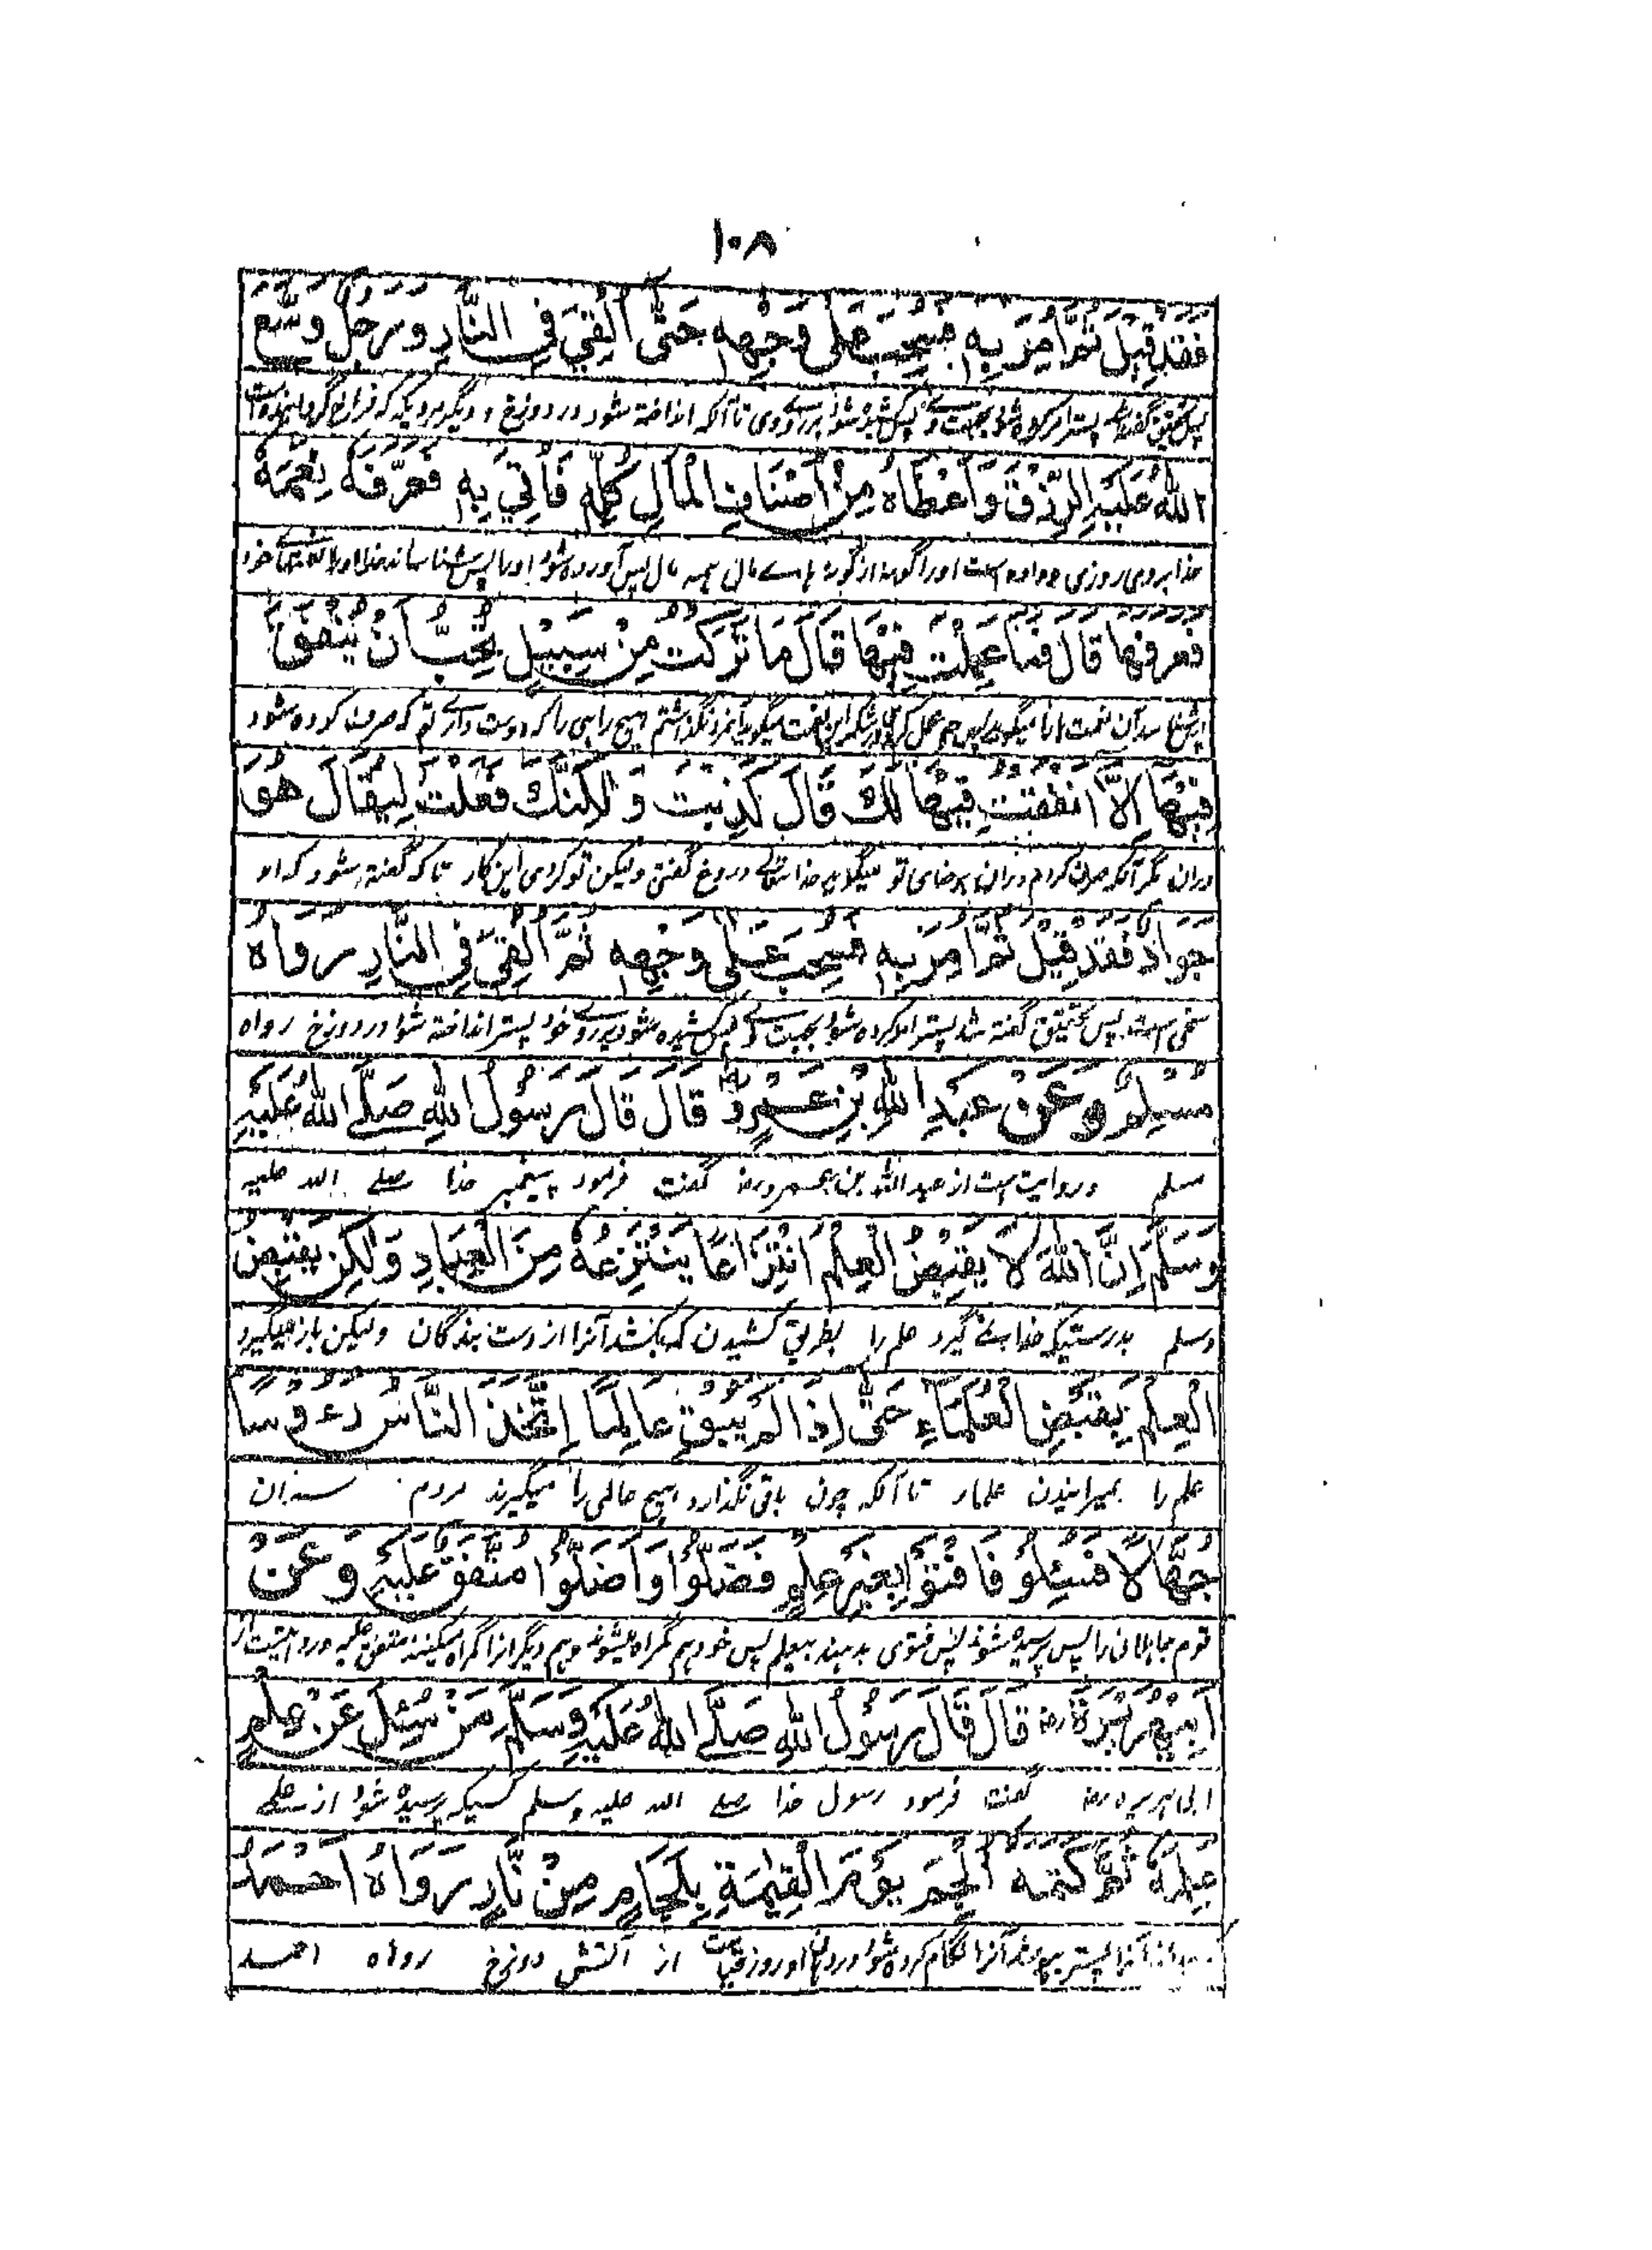 ١٠٨
فَقَدْ قِيْلَ ثُمَّ اُمِرَ بِهٖ فَسُحِبَ عَلٰى وَجْهِهٖ حَتّٰى اُلْقِيَ فِي النَّارِ وَرَجُلٌ وَسَّعَ
پس تحقیق گفته شد پستر امر کرده شود بجهت وے پس کشیده شود بر روے وی تا آنکه انداخته شود در دوزخ و دیگر مردیکه که فراخ گردانیده است
اللّٰهُ عَلَيْهِ الرِّزْقَ وَاَعْطَاهُ مِنْ اَصْنَافِ الْمَالِ كُلِّهٖ فَاُتِيَ بِهٖ فَعَرَّفَهٗ نِعَمَهٗ
خدا بر وی روزی و داده است اورا گونه از گونه هاے مال همه مال پس آورده شود اورا پس شناساند خدا اورا خود
فَعَرَفَهَا قَالَ فَمَا عَمِلْتَ فِيْهَا قَالَ مَا تَرَكْتُ مِنْ سَبِيْلٍ تُحِبُّ اَنْ يُّنْفَقَ
آن نعمت را میگوید پس چه عمل کردی در شکر این نعمت میگوید آنمرد نگذاشتم هیچ راهی را که دوست داری تو که صرف کرده شود
فِيْهَا اِلَّا اَنْفَقْتُ فِيْهَا لَكَ قَالَ كَذَبْتَ وَلٰكِنَّكَ فَعَلْتَ لِيُقَالَ هُوَ
دران مگر آنکه صرف کردم دران برضای تو میگوید خدا تعالے دروغ گفتی ولیکن تو کردی این کار تا که گفته شود که او
جَوَادٌ فَقَدْ قِيْلَ ثُمَّ اُمِرَ بِهٖ فَسُحِبَ عَلٰى وَجْهِهٖ ثُمَّ اُلْقِيَ فِي النَّارِ رَوَاهُ
سخی است پس تحقیق گفته شد پستر امر کرده شود بجهت وے پس کشیده شود بر روے خود پستر انداخته شود در دوزخ رواه
مُسْلِمٌ وَعَنْ عَبْدِ اللّٰهِ بْنِ عَمْرٍو رض قَالَ قَالَ رَسُوْلُ اللّٰهِ صَلَّے اللّٰهُ عَلَيْهِ
مسلم و روایت ست از عبد الله بن عمرو رض گفت فرمود پیغمبر خدا صلے الله علیه
وَسَلَّمَ اِنَّ اللّٰهَ لَا يَقْبِضُ الْعِلْمَ اِنْتِزَاعًا يَنْتَزِعُهٗ مِنَ الْعِبَادِ وَلٰكِنْ يَقْبِضُ
وسلم بدرستیکه خدا نے گیرد علم را بطریق کشیدن که بکشد آنرا از دست بندگان ولیکن باز میگیرد
الْعِلْمَ بِقَبْضِ الْعُلَمَاءِ حَتّٰى اِذَا لَمْ يُبْقِ عَالِمًا اِتَّخَذَ النَّاسُ رُءُوْسًا
علم را بمیرانیدن علماء تا آنکه چون باقی نگذارد هیچ عالمی را میگیرند مردم
جُهَّالًا فَسُئِلُوْ فَاَفْتَوْا بِغَيْرِ عِلْمٍ فَضَلُّوْا وَاَضَلُّوْا مُتَّفَقٌ عَلَيْهِ وَعَنْ
قوم جاهلان را پس پرسیده شوند پس فتوی بدهند بیعلم پس خود هم گمراه میشوند و هم دیگرانرا گمراه میکنند متفق علیه و روایت ست از
اَبِيْ هُرَيْرَةَ رض قَالَ قَالَ رَسُوْلُ اللّٰهِ صَلَّے اللّٰهُ عَلَيْهِ وَسَلَّمَ مَنْ سُئِلَ عَنْ عِلْمٍ
ابی هریره رض گفت فرمود رسول خدا صلے الله علیه وسلم کسیکه پرسیده شود از علمے
عَلِمَهٗ ثُمَّ كَتَمَهٗ اُلْجِمَ يَوْمَ الْقِيٰمَةِ بِلِجَامٍ مِنْ نَّارٍ رَوَاهُ اَحْمَدُ
آنرا پستر بپوشد آنرا لگام کرده شود در دهان او روز قیامت از آتش دوزخ رواه احمد